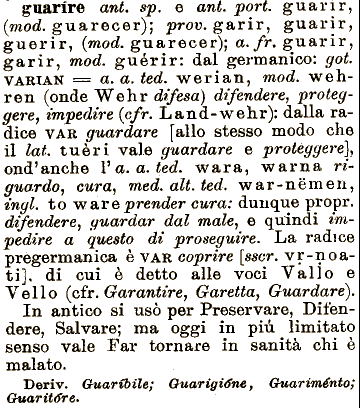 guarire ant. sp. e ant. port. guarir,
(mod. guarecer); prov. garir, guarir,
guerir, (mod. guarecer); a. fr. guarir,
garir, mod. guérir: dal germanico: got.
VARIAN = a. a. ted. werian, mod. weh-
ren (onde Wehr difesa) difendere, proteg-
gere, impedire (cfr. Land-wehr): dalla ra-
dice VAR guardare [allo stesso modo che
il lat. tuèri vale guardare e proteggere],
ond'anche l'a. a. ted. wara, warna ri-
guardo, cura, med. alt. ted. war-nëmen,
ingl. to ware prender cura: dunque propr.
difendere, guardar dal male, e quindi im-
pedire a questo di proseguire. La radice
pregermanica è VAR coprire [sscr. vṛ-noa-
ti], di cui è detto alle voci Vallo e
Vello (cfr. Garantire, Garetta, Guardare).
In antico si usò per Preservare, Difen-
dere, Salvare; ma oggi in piú limitato
senso vale Far tornare in sanità chi è
malato.
Deriv. Guaríbile; Guarigióne, Guariménto;
Guaritóre.